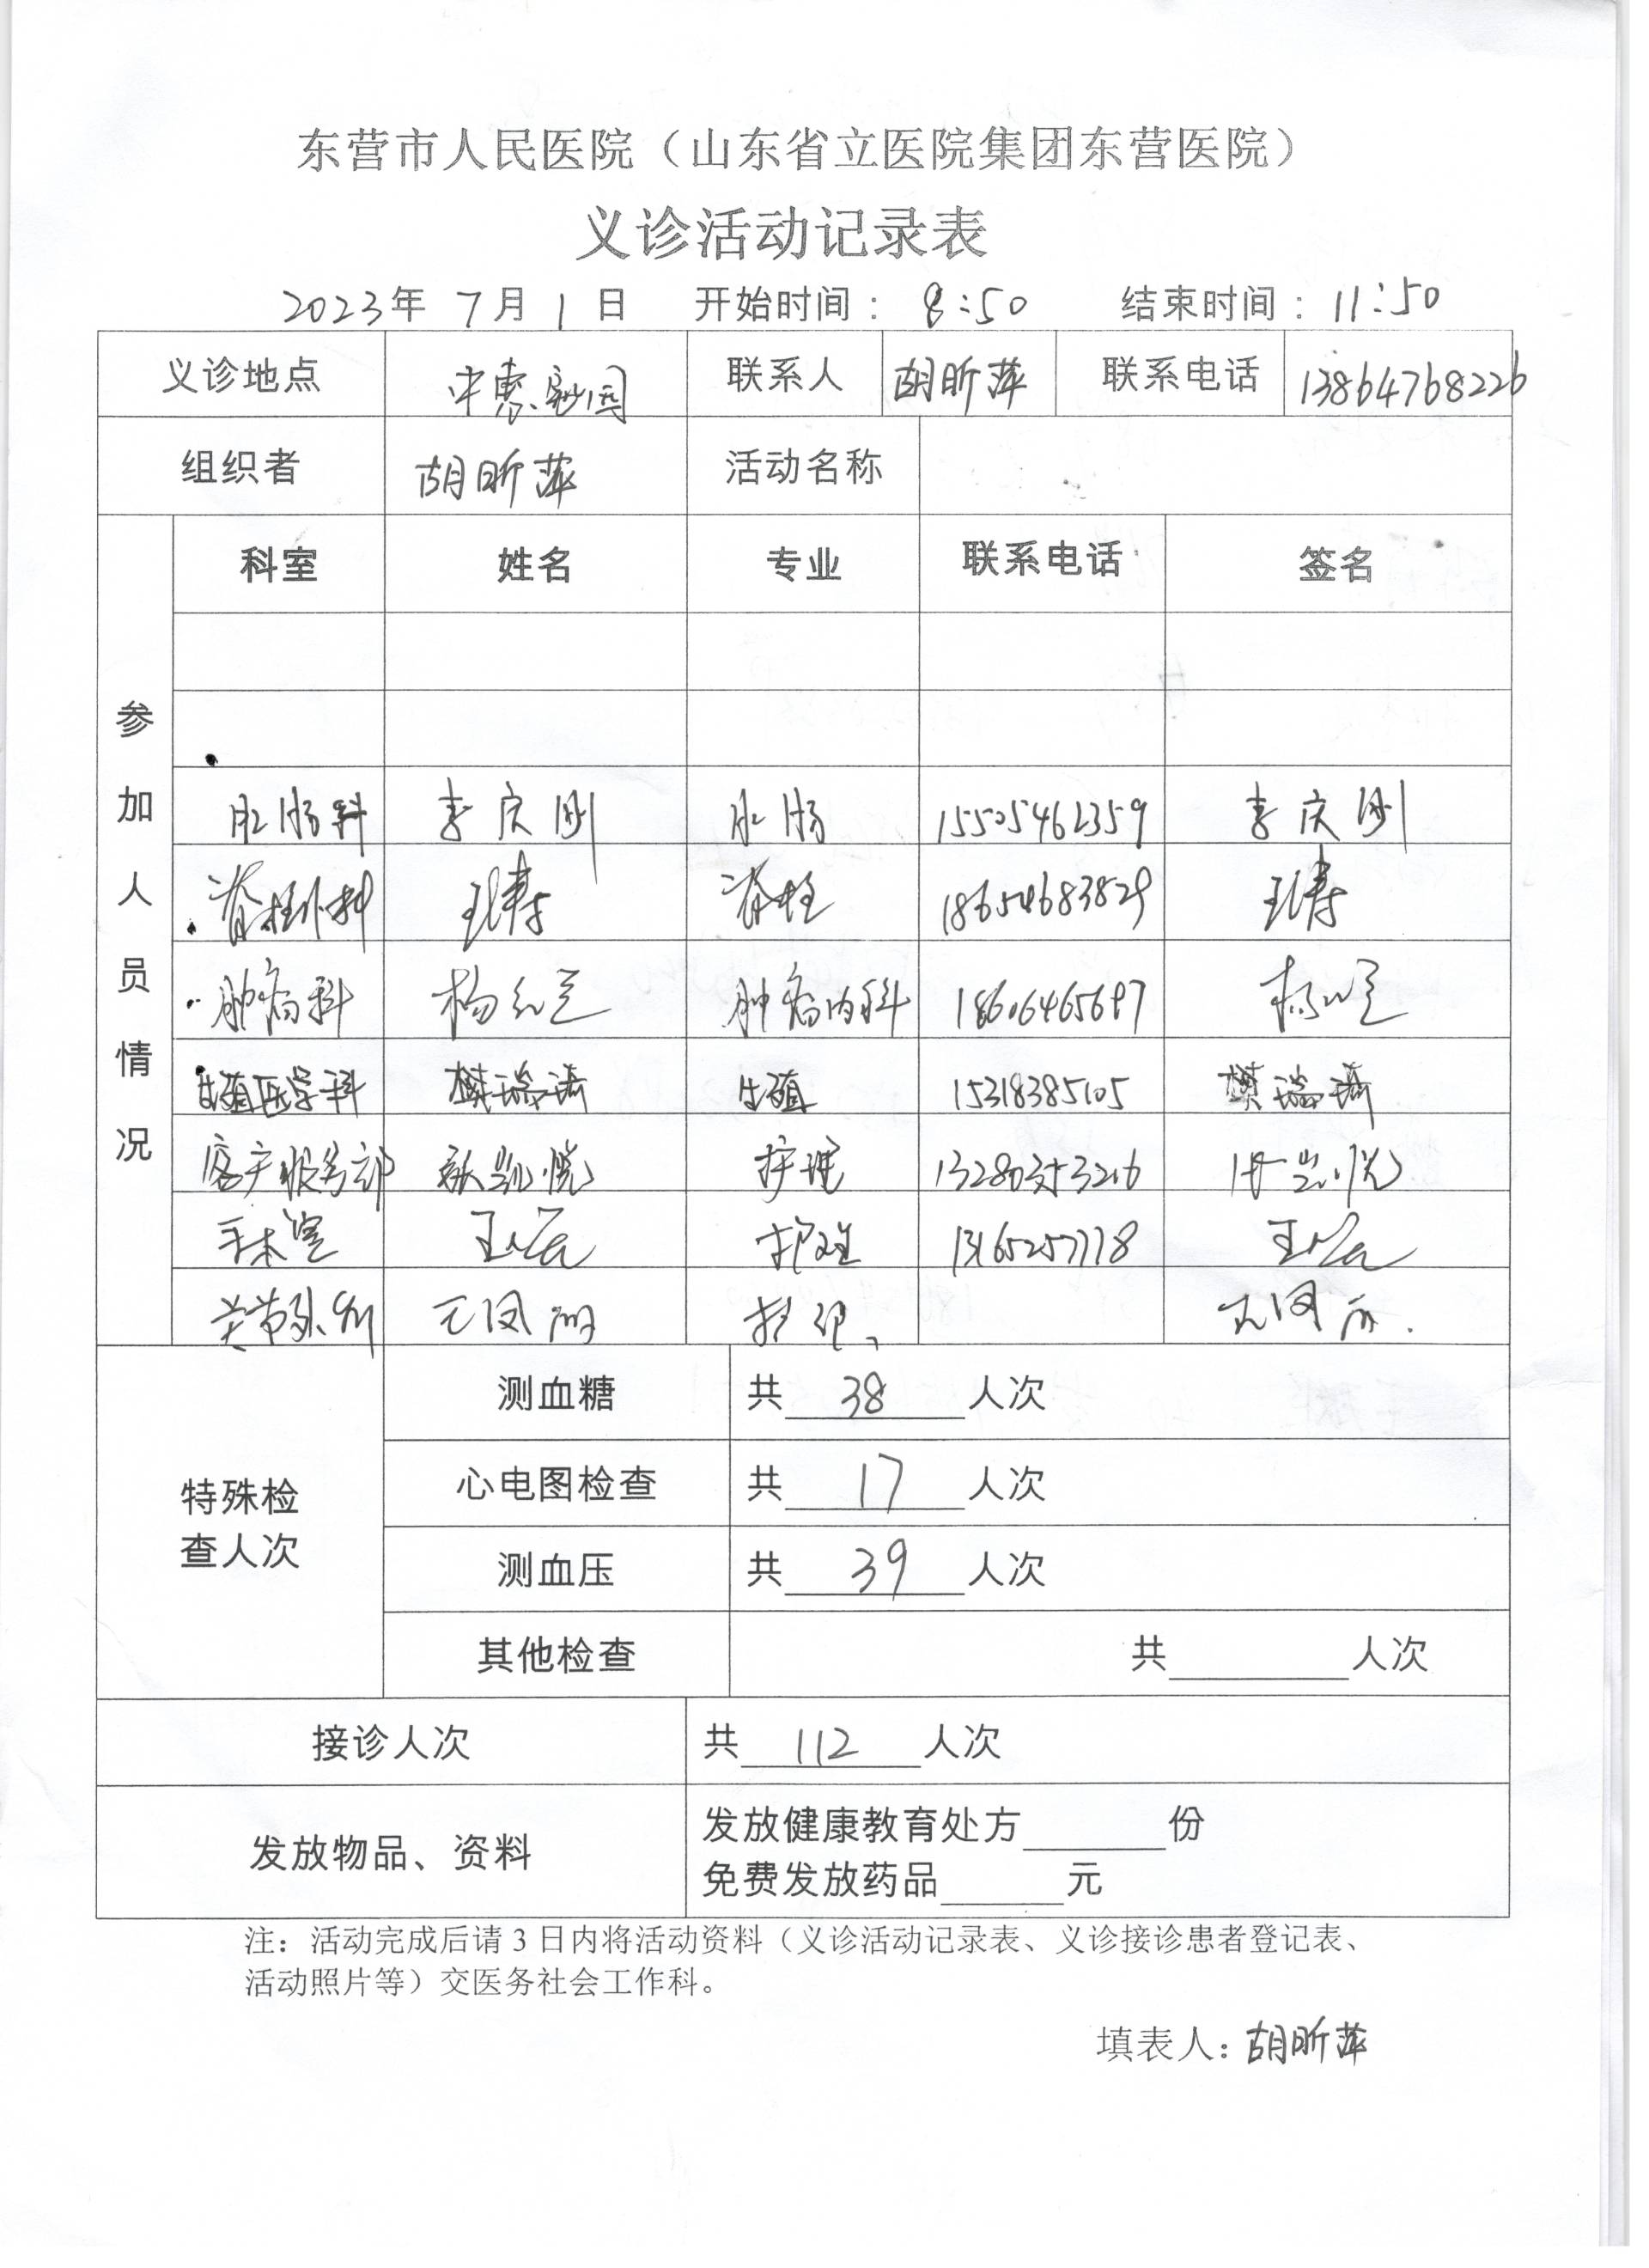 东营市人民医院（山东省立医院集团东营医院）
义诊活动记录表
2023年 7月 1 日 开始时间： 8:50 结束时间：11:50
义诊地点 中惠 园 联系人 胡昕萍 联系电话 13864768226
组织者 胡昕萍 活动名称
参加人员情况
科室 姓名 专业 联系电话 签名
肛肠科 李庆刚 肛肠 15505462359 李庆刚
脊柱外科 王涛 脊柱 18654683829 王涛
肿瘤科 杨 肿瘤内科 杨
生殖医学科 樊瑞 生殖 15318385105 樊瑞
客户服务部 凯悦 护理 凯悦
手术室 王 护理 王
凤丽 护理 凤丽
特殊检查人次
测血糖 共 38 人次
心电图检查 共 17 人次
测血压 共 39 人次
其他检查 共 人次
接诊人次 共 112 人次
发放物品、资料
发放健康教育处方 份
免费发放药品 元
注：活动完成后请 3 日内将活动资料（义诊活动记录表、义诊接诊患者登记表、
活动照片等）交医务社会工作科。
填表人：胡昕萍